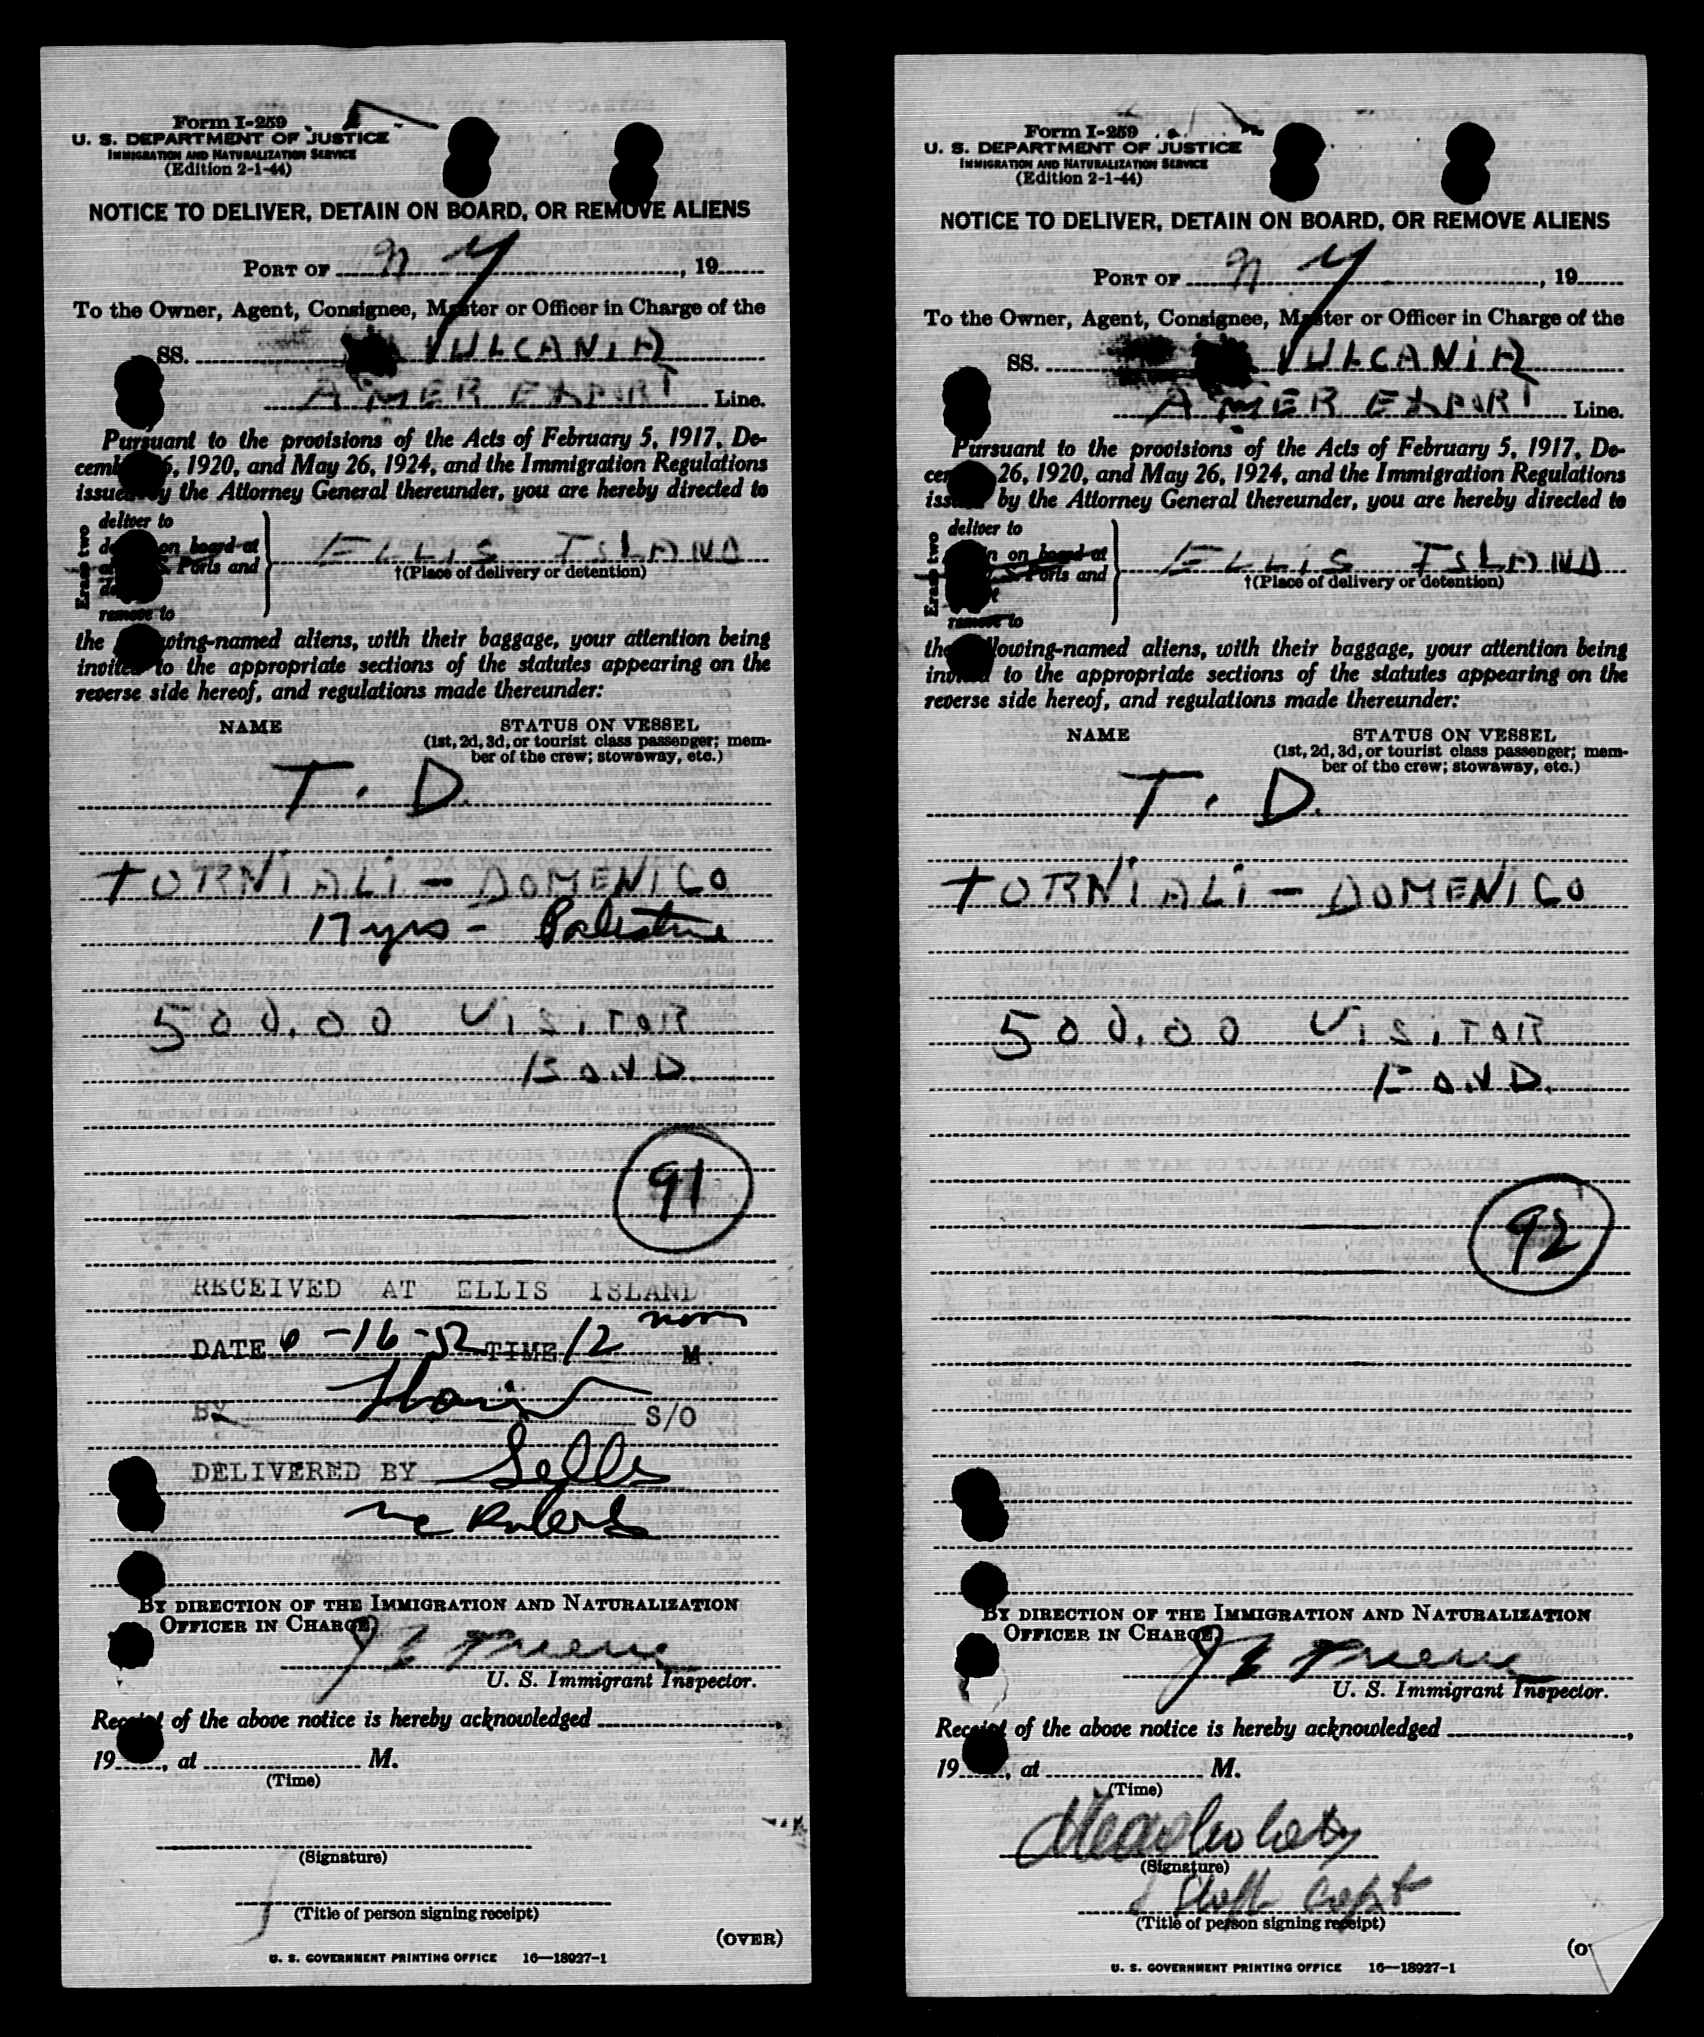 Form I-259
U. S. DEPARTMENT OF JUSTICE
IMMIGRATION AND NATURALIZATION SERVICE
(Edition 2-1-44)
NOTICE TO DELIVER, DETAIN ON BOARD, OR REMOVE ALIENS
PORT OF N Y, 19
To the Owner, Agent, Consignee, Master or Officer in Charge of the
SS. VULCANIA
AMER EXPORT Line.
Pursuant to the provisions of the Acts of February 5, 1917, De-
cember 26, 1920, and May 26, 1924, and the Immigration Regulations
issued by the Attorney General thereunder, you are hereby directed to
Erase two
deliver to
on board at
Ports and
remove to
ELLIS ISLAND
†(Place of delivery or detention)
the following-named aliens, with their baggage, your attention being
invited to the appropriate sections of the statutes appearing on the
reverse side hereof, and regulations made thereunder:
NAME STATUS ON VESSEL
(1st, 2d, 3d, or tourist class passenger; mem-
ber of the crew; stowaway, etc.)
T. D.
TURNIALI - DOMENICO
17 yrs - Palestine
500.00 VISITOR
BOND.
91
RECEIVED AT ELLIS ISLAND
DATE 6-16-52 TIME 12 noon M.
BY S/O
DELIVERED BY Sells
McRoberts
BY DIRECTION OF THE IMMIGRATION AND NATURALIZATION
OFFICER IN CHARGE
U. S. Immigrant Inspector.
Receipt of the above notice is hereby acknowledged ,
19 , at M.
(Time)
(Signature)
(Title of person signing receipt)
(OVER)
U. S. GOVERNMENT PRINTING OFFICE 16—18927-1
Form I-259
U. S. DEPARTMENT OF JUSTICE
IMMIGRATION AND NATURALIZATION SERVICE
(Edition 2-1-44)
NOTICE TO DELIVER, DETAIN ON BOARD, OR REMOVE ALIENS
PORT OF N Y, 19
To the Owner, Agent, Consignee, Master or Officer in Charge of the
SS. VULCANIA
AMER EXPORT Line.
Pursuant to the provisions of the Acts of February 5, 1917, De-
cember 26, 1920, and May 26, 1924, and the Immigration Regulations
issued by the Attorney General thereunder, you are hereby directed to
Erase two
deliver to
on board at
Ports and
remove to
ELLIS ISLAND
†(Place of delivery or detention)
the following-named aliens, with their baggage, your attention being
invited to the appropriate sections of the statutes appearing on the
reverse side hereof, and regulations made thereunder:
NAME STATUS ON VESSEL
(1st, 2d, 3d, or tourist class passenger; mem-
ber of the crew; stowaway, etc.)
T. D.
TURNIALI - DOMENICO
500.00 VISITOR
BOND.
92
BY DIRECTION OF THE IMMIGRATION AND NATURALIZATION
OFFICER IN CHARGE
U. S. Immigrant Inspector.
Receipt of the above notice is hereby acknowledged ,
19 , at M.
(Time)
(Signature)
Capt
(Title of person signing receipt)
U. S. GOVERNMENT PRINTING OFFICE 16—18927-1